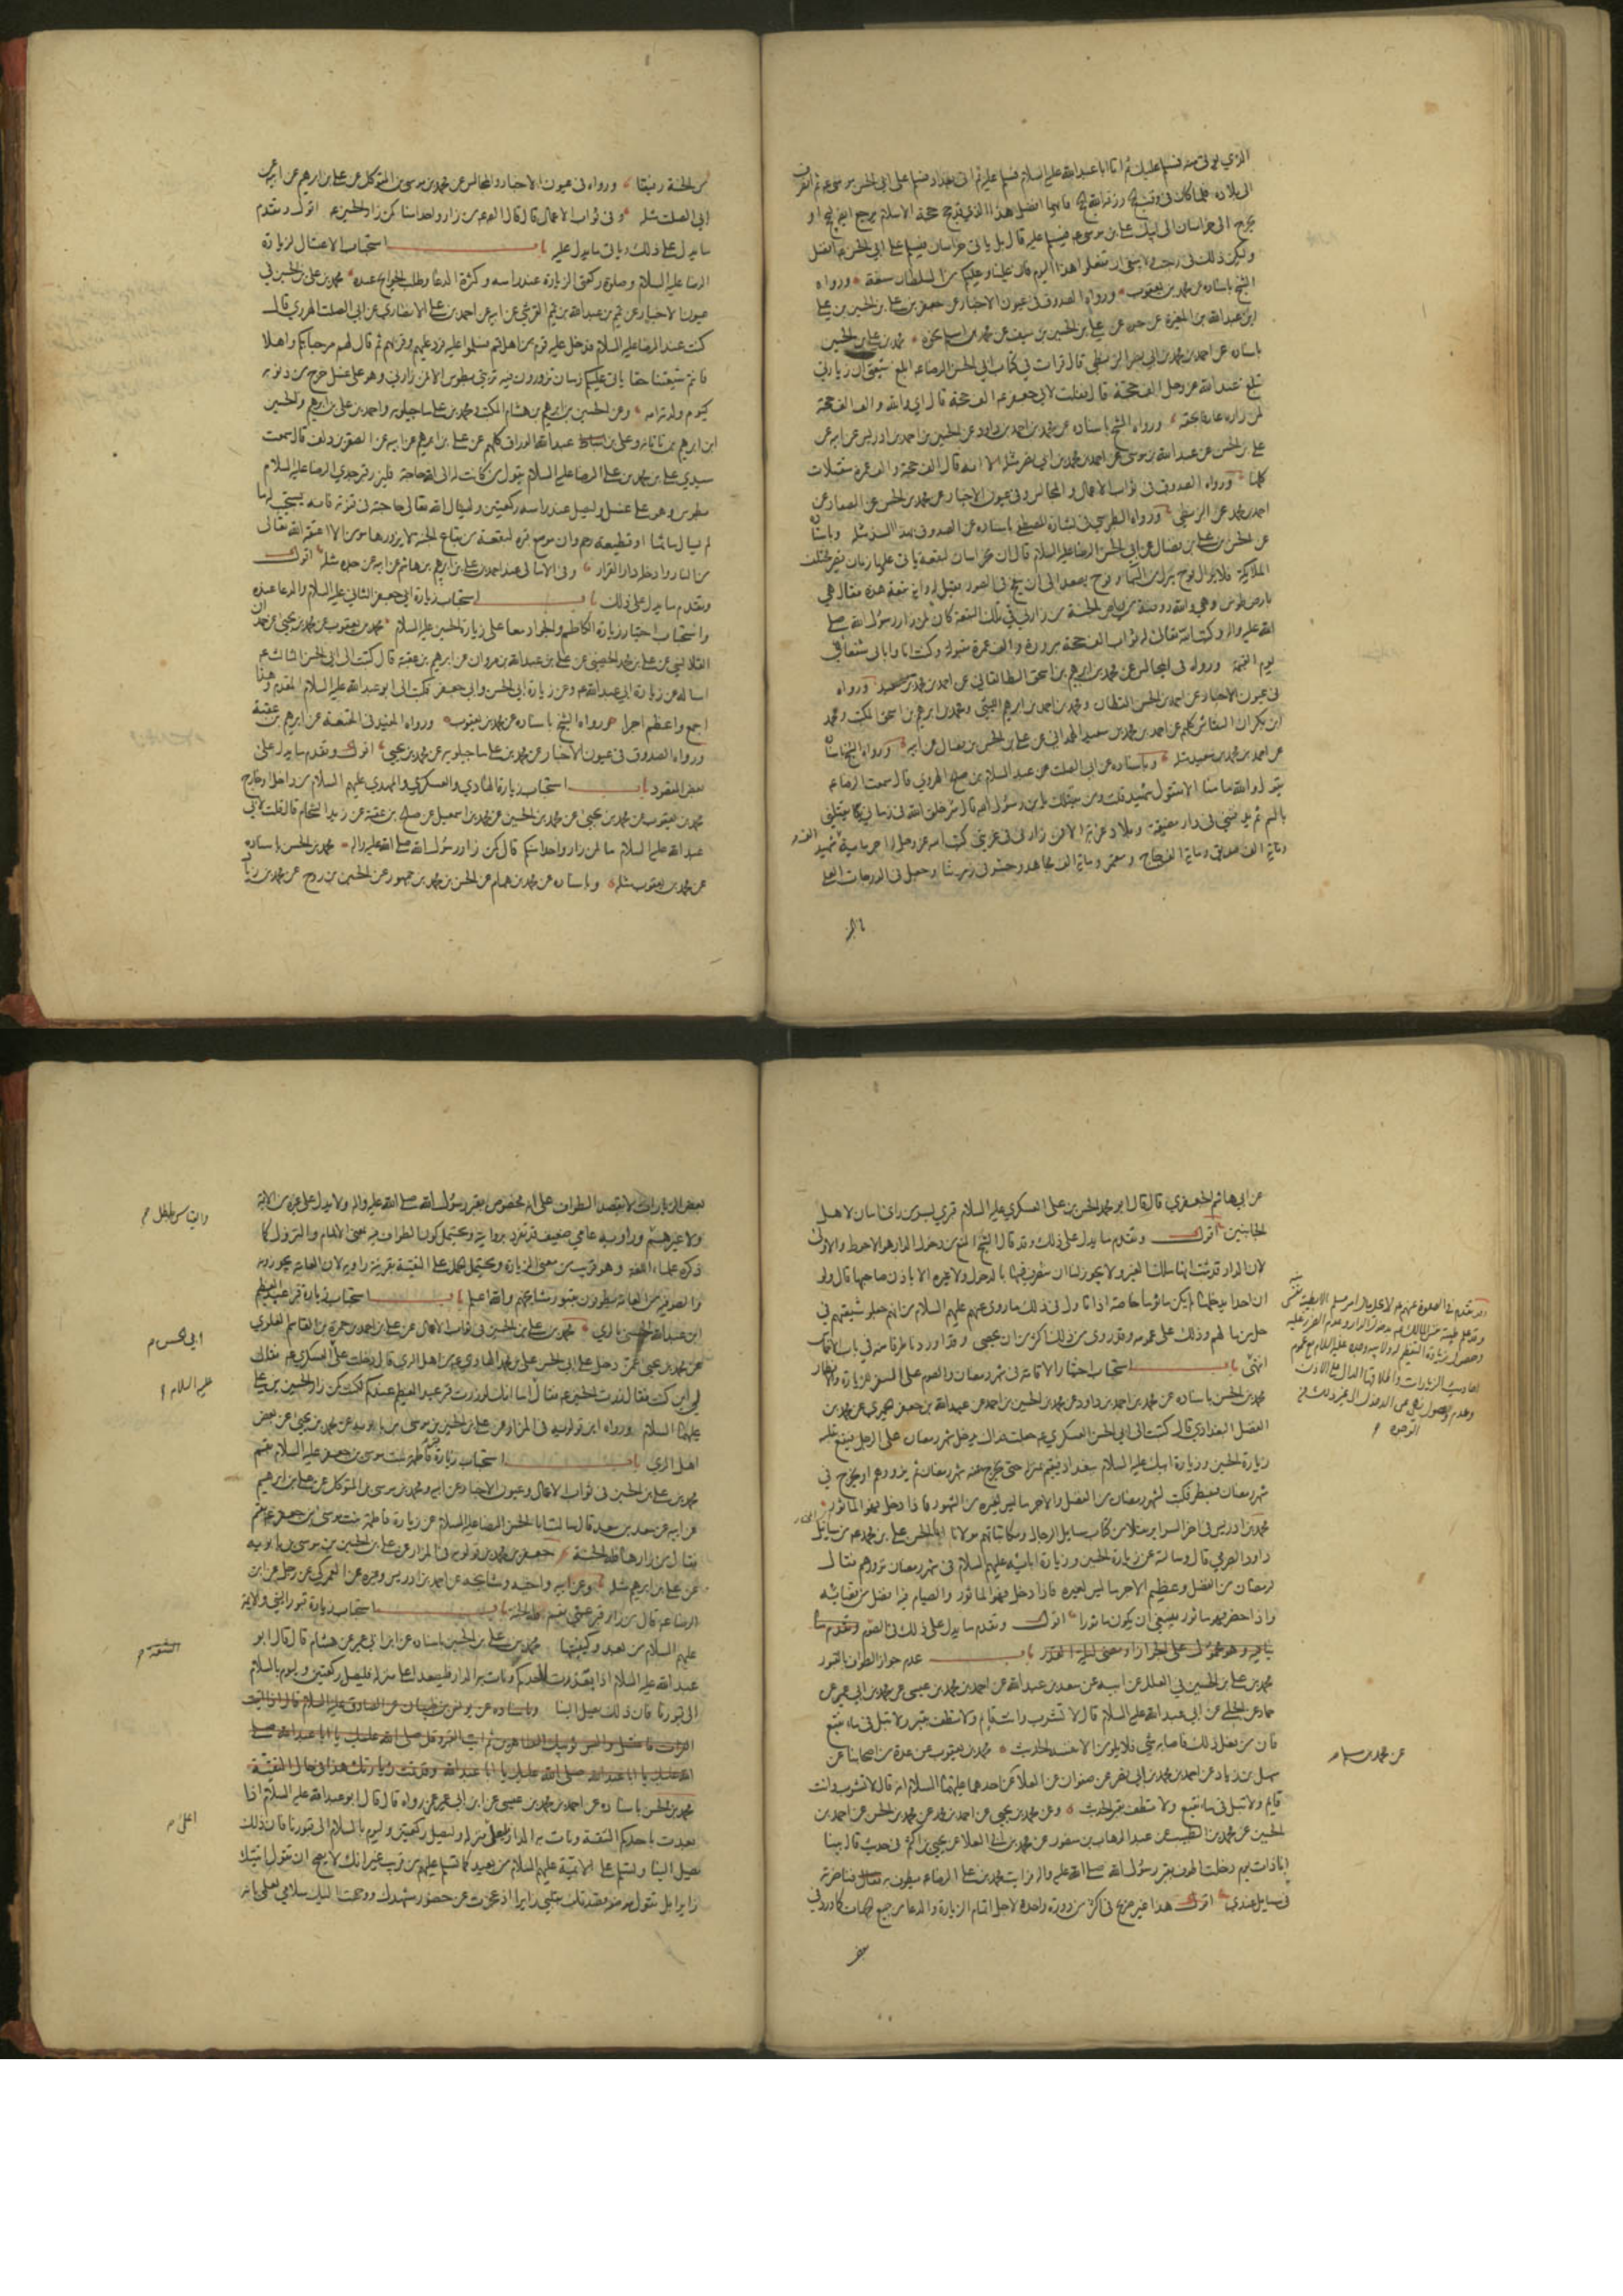 الذي يولى منه فسلم عليك ثم اتا ابا عبد الله عليه السلام فسلم عليه ثم اتى بغداد فسلم على ابي الحسن موسى ع ثم انصرف
الى بلاده فلما كان في وقت الحج رزقه الله الحج فايهما افضل هذا الذي قد حج حجة الاسلام يرجع ايضا يحج او
يخرج الى خراسان الى ابيك علي بن موسى ع فيسلم عليه قال بل ياتي خراسان فيسلم على ابي الحسن ع افضل
وليكن ذلك في رجب ولا ينبغي ان تفعلوا هذا اليوم فان علينا وعليكم من السلطان شنعة ورواه
الشيخ باسناده عن محمد بن يعقوب ورواه الصدوق في عيون الاخبار عن جعفر بن علي بن الحسين بن علي
ابن عبد الله بن المغيرة عن جده عن علي بن الحسين بن سيف عن محمد بن اسلم نحوه محمد بن علي بن الحسين
باسناده عن احمد بن محمد بن ابي نصر البزنطي قال قرات في كتاب ابي الحسن الرضا ع ابلغ شيعتي ان زيارتي
تبلغ عند الله عز وجل الف حجة قال فقلت لابي جعفر ع الف حجة قال اي والله والف الف حجة
لمن زاره عارفا بحقه ورواه الشيخ باسناده عن محمد بن احمد بن داود عن الحسين بن احمد بن ادريس عن ابيه عن
علي بن الحسن عن عبد الله بن موسى عن احمد بن محمد بن ابي نصر مثله الا انه قال الف حجة والف عمرة متقبلات
كلها ورواه الصدوق في ثواب الاعمال والمجالس وفي عيون الاخبار عن محمد بن الحسن عن الصفار عن
احمد بن محمد عن البزنطي ورواه الطبري في بشارة المصطفى باسناده عن الصدوق بهذا السند مثله وباسناده
عن الحسن بن علي بن فضال عن ابي الحسن الرضا عليه السلام قال ان بخراسان لبقعة ياتي عليها زمان تصير مختلف
الملائكة فلا يزال فوج ينزل من السماء وفوج يصعد الى ان ينفخ في الصور فقيل له واية بقعة هذه فقال هي
بارض طوس وهي والله روضة من رياض الجنة من زارني في تلك البقعة كان كمن زار رسول الله صلى
الله عليه واله وكتب الله تعالى له ثواب الف حجة مبرورة والف عمرة مقبولة وكنت انا وابائي شفعاؤه
يوم القيمة ورواه في المجالس عن محمد بن ابراهيم بن اسحق الطالقاني عن احمد بن محمد بن سعيد ورواه
في عيون الاخبار عن احمد بن الحسن القطان ومحمد بن احمد بن ابراهيم الليثي ومحمد بن ابراهيم بن اسحق المكتب ومحمد
ابن بكران النقاش كلهم عن احمد بن محمد بن سعيد الهمداني عن علي بن الحسن بن فضال عن ابيه ورواه الشيخ باسناده
عن احمد بن محمد بن سعيد مثله وباسناده عن ابي الصلت عن عبد السلام بن صالح الهروي قال سمعت الرضا ع
يقول والله ما منا الا مقتول شهيد قلت ومن يقتلك يا بن رسول الله قال شر خلق الله في زماني يقتلني
بالسم ثم يدفنني في دار مضيقة وبلاد غربة الا فمن زارني في غربتي كتب الله عز وجل له اجر ماية الف شهيد
وماية الف صديق وماية الف حاج ومعتمر وماية الف مجاهد وحشر في زمرتنا وجعل في الدرجات العلى
من الجنة رفيقنا ورواه في عيون الاخبار والمجالس عن محمد بن موسى بن المتوكل عن علي بن ابراهيم عن ابيه عن
ابي الصلت مثله وفي ثواب الاعمال قال قال الصادق ع من زار واحدا منا كمن زار الحسين ع اقول وتقدم
ما يدل على ذلك وياتي ما يدل عليه باب استحباب الاغتسال لزيارة
الرضا عليه السلام وصلوة ركعتي الزيارة عند راسه وكثرة الدعاء وطلب الحوائج عنده محمد بن علي بن الحسين في
عيون الاخبار عن تميم بن عبد الله بن تميم القرشي عن ابيه عن احمد بن علي الانصاري عن ابي الصلت الهروي قال
كنت عند الرضا عليه السلام فدخل عليه قوم من اهل قم فسلموا عليه فرد عليهم وقربهم ثم قال لهم مرحبا بكم واهلا
فانتم شيعتنا حقا ياتي عليكم زمان تزورون فيه تربتي بطوس الا فمن زارني وهو على غسل خرج من ذنوبه
كيوم ولدته امه وعن الحسين بن ابراهيم بن هشام المكتب ومحمد بن علي ماجيلويه واحمد بن علي بن ابراهيم والحسين
ابن ابراهيم بن ناتانه وعلي بن عبد الله الوراق كلهم عن علي بن ابراهيم عن ابيه عن الصقر بن دلف قال سمعت
سيدي علي بن محمد بن علي الرضا عليه السلام يقول من كانت له الى الله حاجة فليزر قبر جدي الرضا عليه السلام
بطوس وهو على غسل وليصل عند راسه ركعتين وليسال الله تعالى حاجته في قنوته فانه يستجيب له ما
لم يسال ماثما او قطيعة رحم وان موضع قبره لبقعة من بقاع الجنة لا يزورها مومن الا اعتقه الله تعالى
من النار وادخله دار القرار وفي الامالي عن احمد بن علي بن ابراهيم بن هاشم عن ابيه عن جده مثله اقول
وتقدم ما يدل على ذلك باب استحباب زيارة ابي جعفر الثاني عليه السلام والدعاء عنده
واستحباب اختيار زيارة الكاظم والجواد معا على زيارة الحسين عليه السلام محمد بن يعقوب عن محمد بن يحيى عن حمدان
القلانسي عن علي بن محمد الحضيني عن علي بن عبد الله بن مروان عن ابراهيم بن عقبة قال كتبت الى ابي الحسن الثالث ع
اساله عن زيارة ابي عبد الله ع وعن زيارة ابي الحسن وابي جعفر فكتب الى ابو عبد الله عليه السلام المقدم وهذا
اجمع واعظم اجرا ورواه الشيخ باسناده عن محمد بن يعقوب ورواه المفيد في المقنعة عن ابراهيم بن عقبة
ورواه الصدوق في عيون الاخبار عن محمد بن علي ماجيلويه عن محمد بن يحيى اقول وتقدم ما يدل على
بعض المقصود باب استحباب زيارة الهادي والعسكري والمهدي عليهم السلام من داخل او خارج
محمد بن يعقوب عن محمد بن يحيى عن محمد بن الحسين عن محمد بن اسمعيل عن صالح بن عقبة عن زيد الشحام قال قلت لابي
عبد الله عليه السلام ما لمن زار واحدا منكم قال كمن زار رسول الله صلى الله عليه واله محمد بن الحسن باسناده
عن محمد بن يعقوب مثله وباسناده عن محمد بن همام عن الحسن بن محمد بن جمهور عن الحسين بن روح عن محمد بن زياد
عن ابي هاشم الجعفري قال قال ابو محمد الحسن بن علي العسكري عليه السلام قبري بسر من راى امان لاهل
الجانبين اقول وتقدم ما يدل على ذلك وقد قال الشيخ المنع من دخول الدار هو الاحوط والاولى
لان الدار قد ثبت انها ملك الغير ولا يجوز لنا ان نتصرف فيها بالدخول ولا غيره الا باذن صاحبها قال ولو
ان احدا يدخلها لم يكن ماثوما خاصة اذا تاول في ذلك ما روي عنهم عليهم السلام من انهم جعلوا شيعتهم في
حل من مالهم وذلك على عمومه وقد روي من ذلك اكثر من ان يحصى وقد اوردنا طرفا منه في باب الاخماس
انتهى باب استحباب اختيار الاقامة في شهر رمضان والصوم على السفر للزيارة والافطار
محمد بن الحسن باسناده عن محمد بن احمد بن داود عن محمد بن الحسين بن احمد عن عبد الله بن جعفر الحميري عن محمد بن
الفضل البغدادي قال كتبت الى ابي الحسن العسكري ع جعلت فداك يدخل شهر رمضان على الرجل فيقع بقلبه
زيارة الحسين وزيارة ابيك عليه السلام ببغداد فيقيم في منزله حتى يخرج عنه شهر رمضان ثم يزورهم او يخرج في
شهر رمضان فيفطر فكتب لشهر رمضان من الفضل والاجر ما ليس لغيره من الشهور فاذا دخل فهو الماثور
محمد بن ادريس في اخر السراير نقلا من كتاب مسايل الرجال ومكاتباتهم مولانا ابا الحسن علي بن محمد ع من مسايل
داود الصرمي قال وسالته عن زيارة الحسين وزيارة ابائه عليهم السلام في شهر رمضان نزورهم فقال
لرمضان من الفضل وعظيم الاجر ما ليس لغيره فاذا دخل فهو الماثور والصيام فيه افضل من قضائه
واذا حضر فهو ماثور ينبغي ان يكون ماثورا اقول وتقدم ما يدل على ذلك في الصوم
باب عدم جواز الطواف بالقبور
محمد بن علي بن الحسين في العلل عن ابيه عن سعد بن عبد الله عن احمد بن محمد بن عيسى عن محمد بن ابي عمير عن
حماد عن الحلبي عن ابي عبد الله عليه السلام قال لا تشرب وانت قائم ولا تطف بقبر ولا تبل في ماء نقيع
فان من فعل ذلك فاصابه شيء فلا يلومن الا نفسه الحديث محمد بن يعقوب عن عدة من اصحابنا عن
سهل بن زياد عن احمد بن محمد بن ابي نصر عن صفوان عن العلا عن احدهما عليهما السلام انه قال لا تشرب وانت
قايم ولا تبل في ماء نقيع ولا تطف بقبر الحديث وعن محمد بن يحيى عن احمد بن محمد عن محمد بن الحسن عن احمد بن
الحسين عن محمد بن الطيب عن عبد الوهاب بن منصور عن محمد بن ابي العلا عن يحيى بن اكثم في حديث قال بينا
انا ذات يوم دخلت اطوف بقبر رسول الله صلى الله عليه واله فرايت محمد بن علي الرضا ع يطوف به فناظرته
في مسايل عندي اقول هذا غير صريح في اكثر من دورة واحدة لاجل اتمام الزيارة والدعاء من جميع الجهات كما ورد في
عن محمد بن مسلم
بعض الزيارات لا بقصد الطواف على انه مخصوص بقبر رسول الله صلى الله عليه واله ولا يدل على غيره من الائمة
ولا غيرهم وراويه عامي ضعيف قد تفرد بروايته ويحتمل كون الطواف فيه بمعنى الالمام والنزول كما
ذكره علماء اللغة وهو قريب من معنى الزيارة ويحتمل الحمل على التقية بقرينة راويه لان العامة يجوزونه
والصوفية من العامة يطوفون بقبور مشايخهم والله اعلم باب استحباب زيارة قبر عبد العظيم
ابن عبد الله الحسني بالري محمد بن علي بن الحسين في ثواب الاعمال عن علي بن احمد عن حمزة بن القاسم العلوي
عن محمد بن يحيى عمن دخل على ابي الحسن علي بن محمد الهادي ع من اهل الري قال دخلت على العسكري ع فقال
لي اين كنت فقلت زرت الحسين ع فقال اما انك لو زرت قبر عبد العظيم عندكم لكنت كمن زار الحسين بن علي
عليهما السلام ورواه ابن قولويه في المزار عن علي بن الحسين بن موسى بن بابويه عن محمد بن يحيى عن بعض
اهل الري باب استحباب زيارة قبر فاطمة بنت موسى بن جعفر عليه السلام بقم
محمد بن علي بن الحسين في ثواب الاعمال وعيون الاخبار عن ابيه ومحمد بن موسى بن المتوكل عن علي بن ابراهيم
عن ابيه عن سعد بن سعد قال سالت ابا الحسن الرضا عليه السلام عن زيارة فاطمة بنت موسى بن جعفر ع بقم
فقال من زارها فله الجنة جعفر بن محمد بن قولويه في المزار عن علي بن الحسين بن موسى بن بابويه
عن علي بن ابراهيم مثله وعن ابيه واخيه ومشايخه عن احمد بن ادريس وغيره عن العمركي عن رجل عن ابن
الرضا ع قال من زار قبر عمتي بقم فله الجنة باب استحباب زيارة قبور النبي والائمة
عليهم السلام من بعيد وكيفيتها محمد بن علي بن الحسين باسناده عن ابن ابي عمير عن هشام قال قال ابو
عبد الله عليه السلام اذا بعدت باحدكم ونات به الدار فليصعد اعلى منزله فليصل ركعتين وليوم بالسلام
الى قبورنا فان ذلك يصل الينا
محمد بن الحسن باسناده عن احمد بن محمد بن عيسى عن ابن ابي عمير عمن رواه قال قال ابو عبد الله عليه السلام اذا
بعدت باحدكم الشقة ونات به الدار فليعل منزله وليصل ركعتين وليوم بالسلام الى قبورنا فان ذلك
يصل الينا وتسلم على الائمة عليهم السلام من بعيد كما تسلم عليهم من قريب غير انك لا يصح ان تقول اتيتك
زايرا بل تقول موضعه قصدتك بقلبي زايرا اذ عجزت عن حضور مشهدك ووجهت اليك سلامي لعلمي بانه
ابي الحسن م
عليه السلام
الشقة م
اعلى م